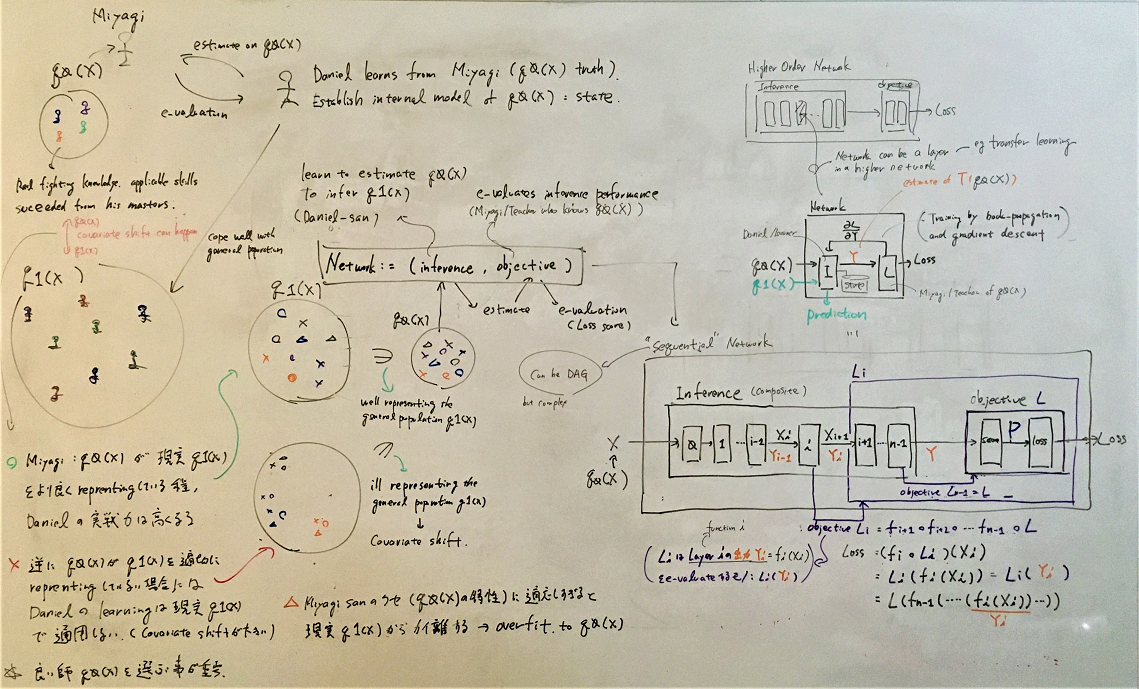 Miyagi
estimate on q0(x)
q0(x)
e-valuation
Daniel learns from Miyagi (q0(x) truth).
Establish internal model of q0(x) = state.
Real fighting knowledge, applicable skills
suceeded from his masters.
q0(x)
covariate shift can happen
q1(x)
cope well with
general popuration
q1(x)
learn to estimate q0(x)
To infer q1(x)
(Daniel-san)
e-valuates inference performance
(Miyagi/Teacher who knows q0(x))
Network := (inference, objective)
estimate
e-valuation
(Loss score)
q1(x)
q0(x)
well representing the
general population q1(x)
ill representing the
general popuration q1(x)
Covariate shift.
Miyagi : q0(x) が 現実 q1(x)
をより良く reprentingしている程、
Danielの実戦力は高くなる
X 逆に q0(x)が q1(x)を適切に
reprentingしていない場合には
Danielの learningは現実 q1(x)
で通用しない. (Covariate shiftが大きい)
△ Miyagi sanのクセ (q0(x)の特性)に適応しすぎると
現実 q1(x)から乖離する → overfit to q0(x)
☆ 良い師 q0(x)を選ぶ事が重要.
Higher Order Network
Inference
objective
Loss
Network can be a layer
in a higher network
eg transfer learning
estimate of T(q0(x)).
Network
Daniel/learner
∂L/∂Y
(Training by back-propagation
and gradient descent)
q0(x)
q1(x)
I
Y
L
Loss
state
Miyagi/Teacher of q0(x)
prediction
"Sequential" Network
Can be DAG
but complex
Li
Inference (composite)
objective L
X
q0(x)
0 1 ... i-1 Xi i Xi+1 i+1 ... n-1 Y P loss Loss
Yi-1 Yi
objective Ln-1 = L
function i
(Li は Layer i の 出力 Yi = fi(Xi)
を e-valuate する : Li(Yi))
: objective Li = fi+1 ∘ fi+2 ∘ ... fn-1 ∘ L
Loss = (fi ∘ Li)(Xi)
= Li(fi(Xi)) = Li(Yi)
= L(fn-1(....(fi(Xi))...))
Yi